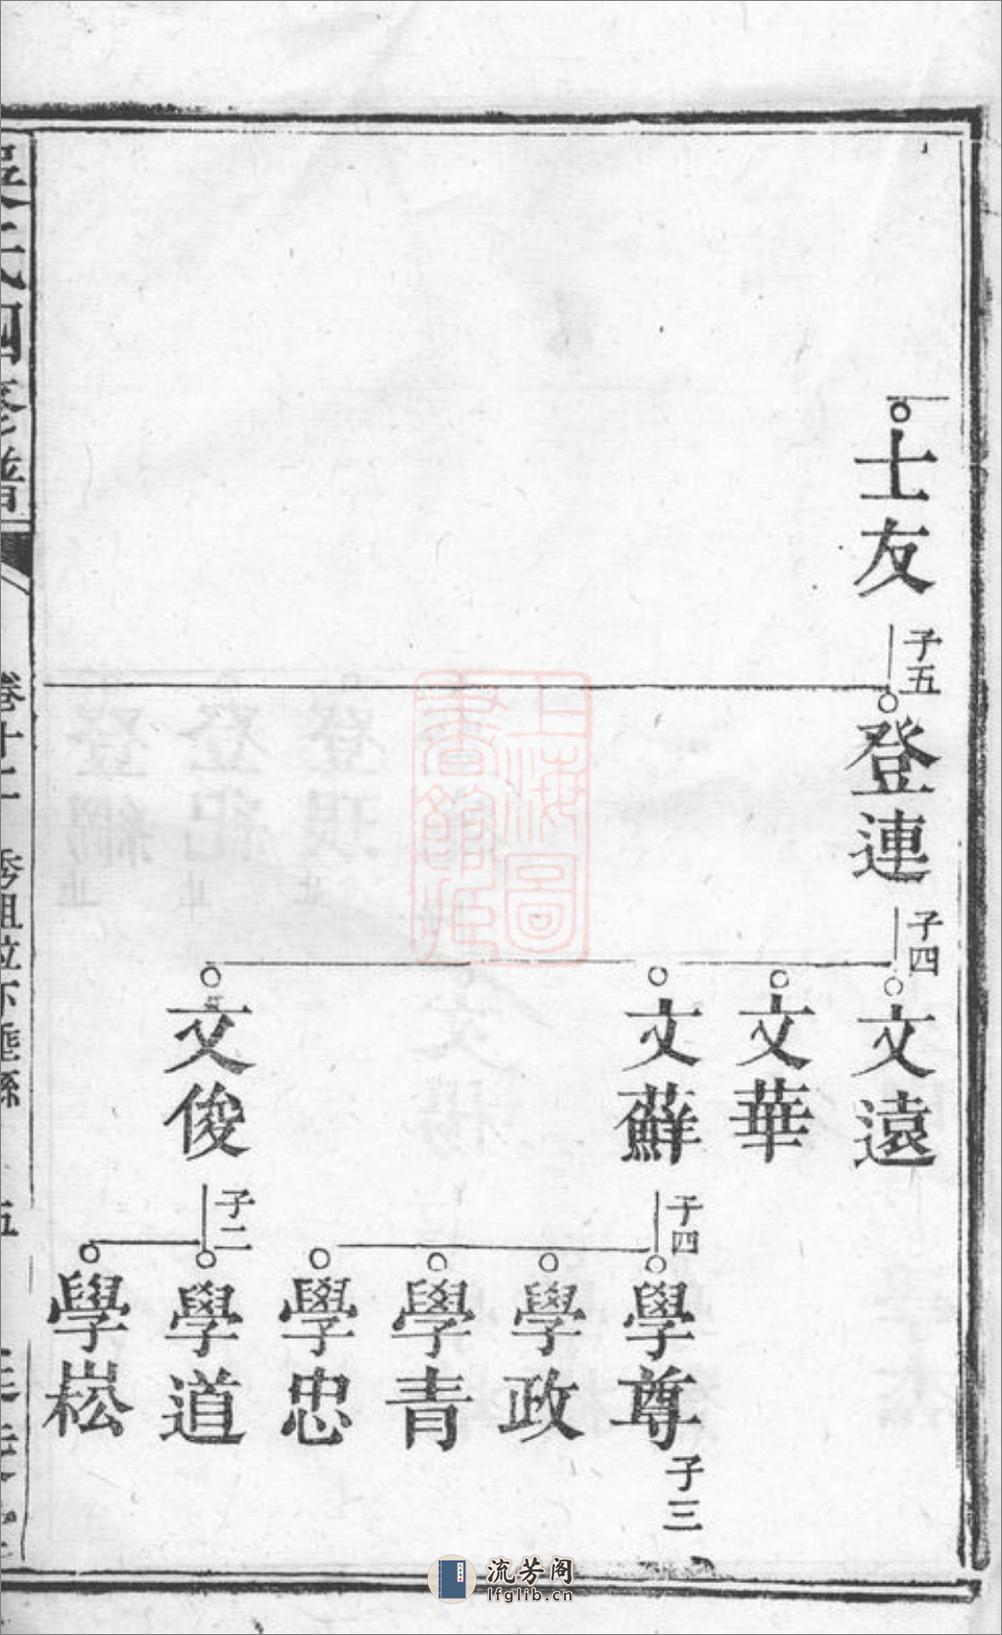 士友
子五
登連
子四
文遠
文華
文蘚
子四
文俊
子二
學尊
子三
學政
學青
學忠
學道
學崧
五
上海圖書館藏
流芳阁
lfglib.cn